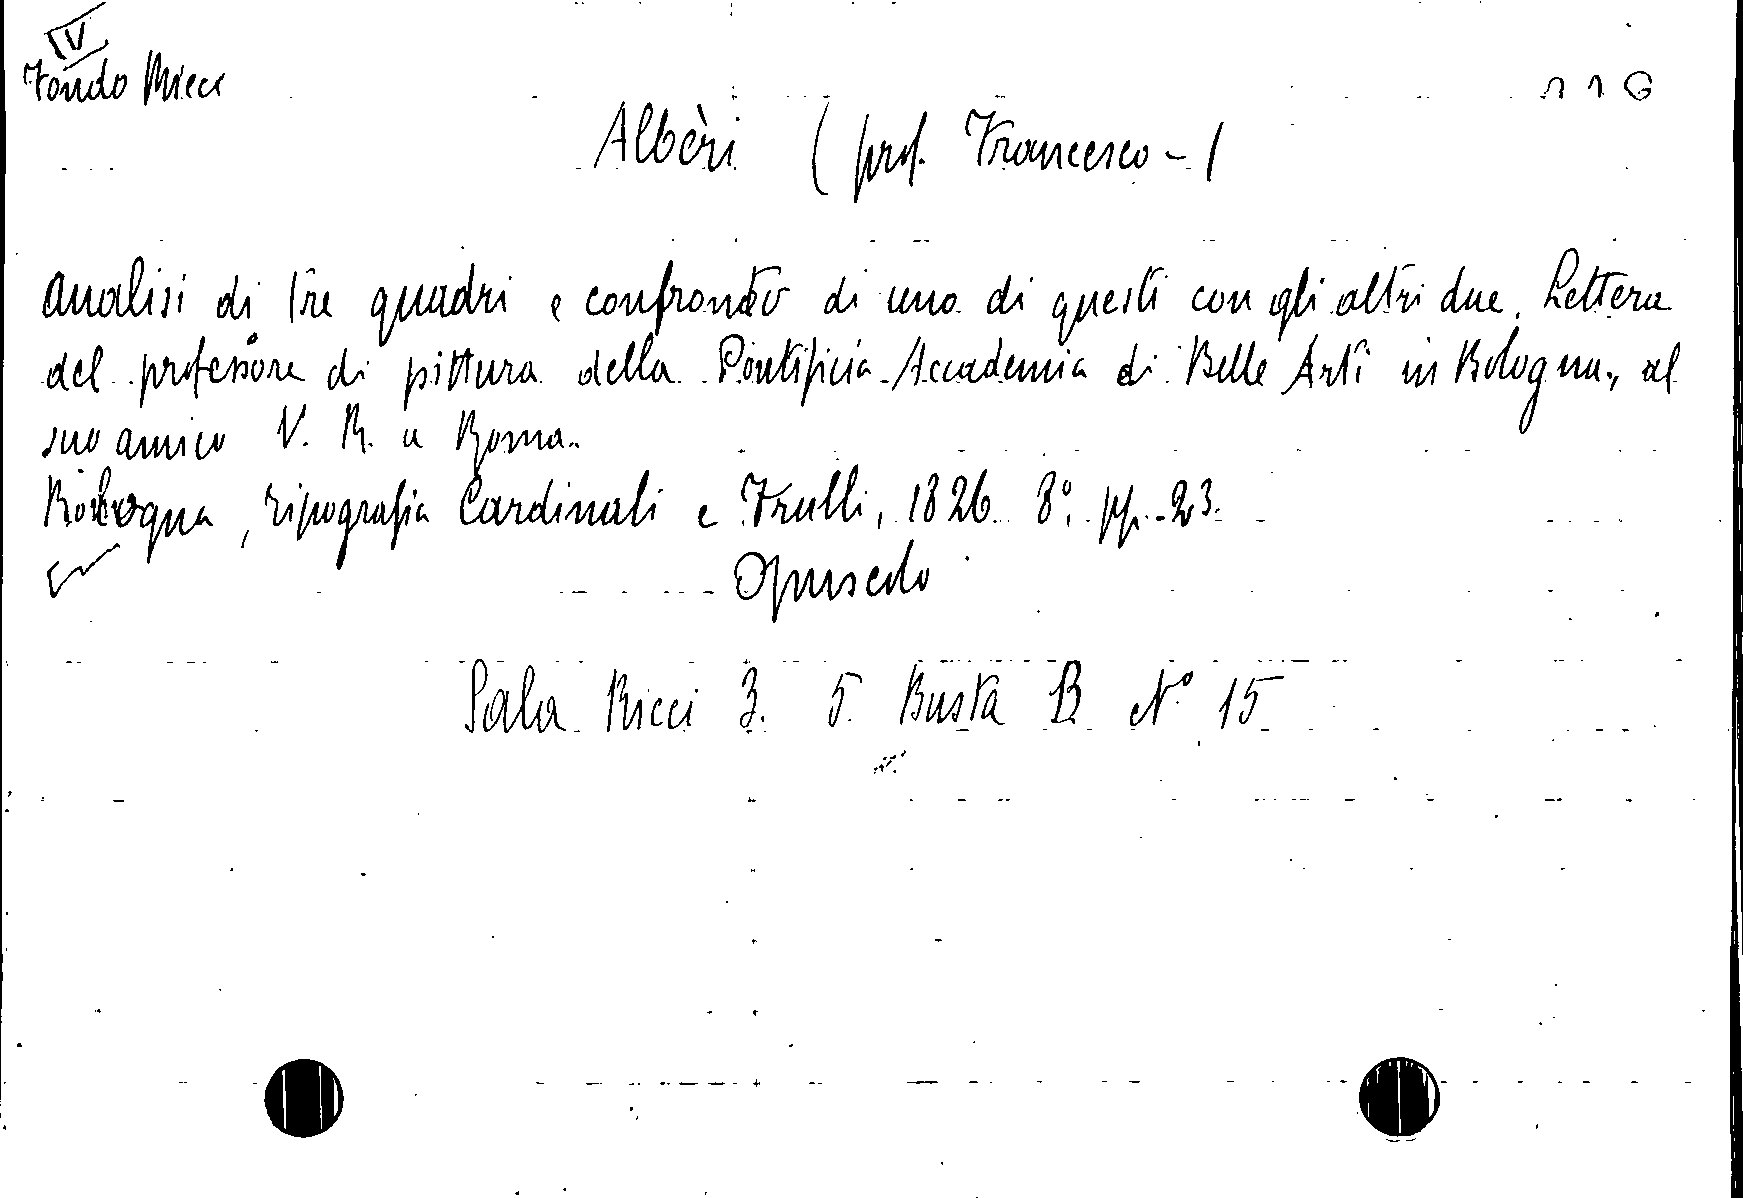 IV
Fondo Ricci
116
Albèri (prof. Francesco-)
Analisi di tre quadri e confronto di uno di questi con gli altri due. Lettera
del professore di pittura della Pontificia Accademia di Belle Arti in Bologna, al
suo amico V. R. a Roma.
Bologna, tipografia Cardinali e Frulli, 1826. 8°. pp. 23.
Opuscolo
Sala Ricci 3. 5. Busta B. N° 15